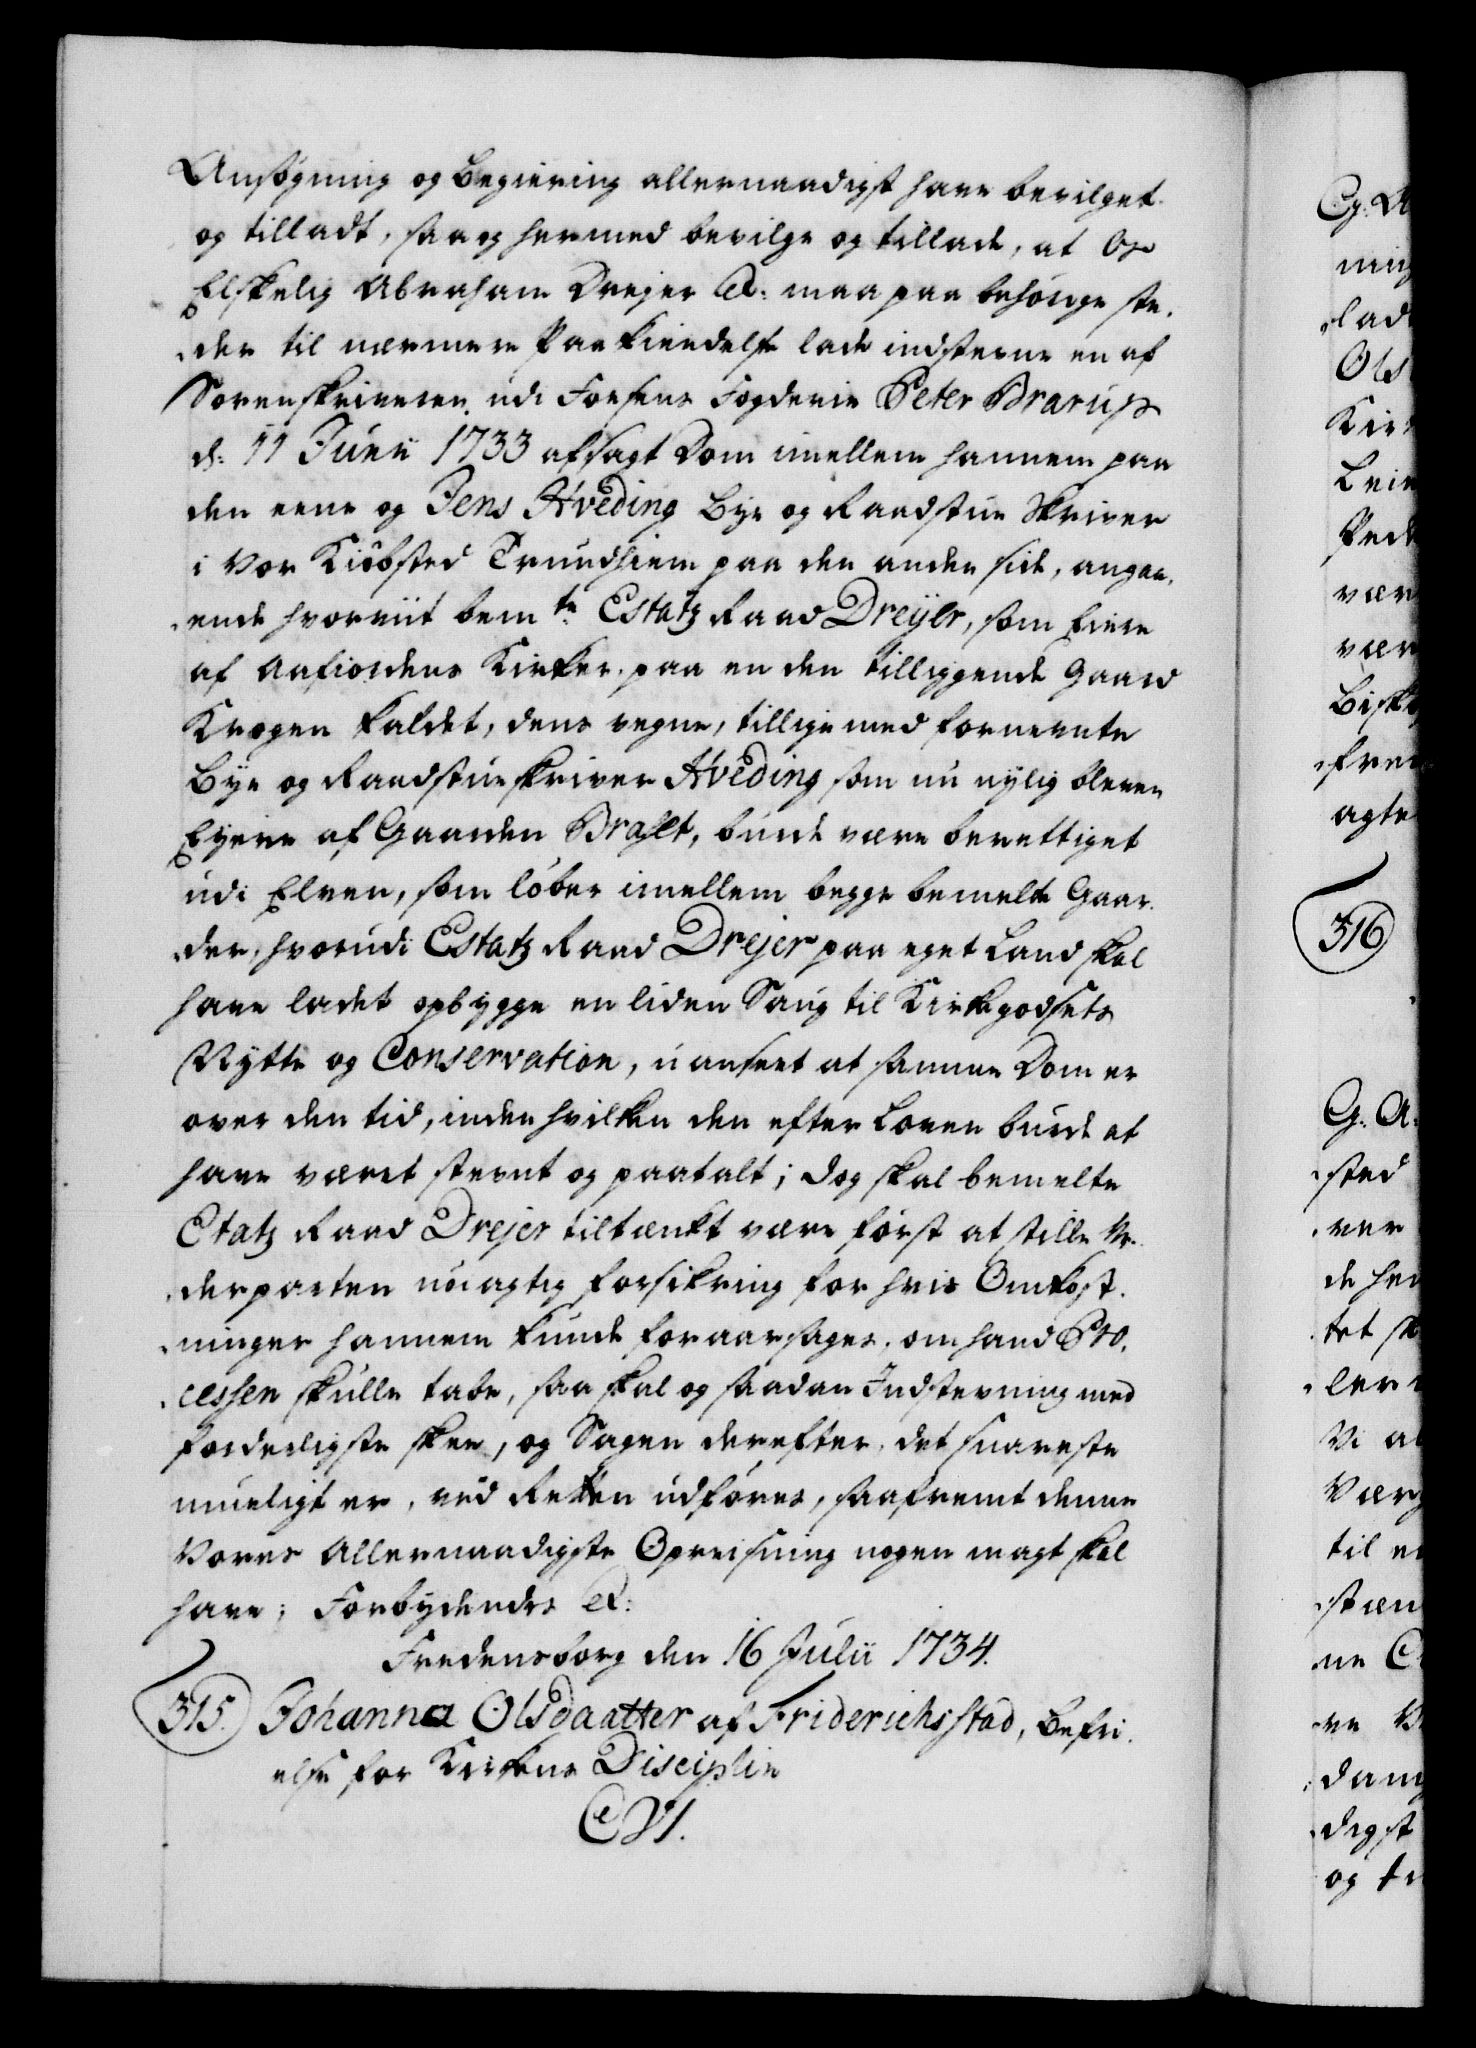 Ansøgning og Begiering allernaadigst have bevilget
og tilladt, saa og hermed bevilge og tillade, at Os
Elskelig Abraham Dreyer &: maa paa behørige ste-
der til nærmere Paakiendelse lade indstevne en af
Sorenskriveren udi Fosens Fogderie Peter Brarup
d: 11 Junii 1733 afsagt Dom imellem hannem paa
den eene og Jens Hveding Bye og Raadstue Skriver
i Vor Kiøbsted Trundhiem paa den anden side, angaa-
ende hvorviit bemte Estatz Raad Dreyer, som Eiere
af Aafiordens Kirker paa en den tilliggende Gaard
Krogen kaldet, dens vegne, tillige med fornevnte
Bye og Raadstue skriver Hveding som nu nylig bleven
Eyere af Gaarden Bratlet, burde være berettiget
udi Elven, som løber imellem begge bemelte Gaar-
der, hvorudi Estatz Raad Drejer paa eget Land skal
have ladet opbygge en liden Saug til Kirkegodsets
Nytte og Conservation, uanseet at samme Dom er
over den tid, inden hvilken den efter Loven burde at
have været stevnt og paatalt; dog skal bemelte
Etatz Raad Drejer tiltænkt være først at stille Ve-
derparten nøiagtig forsikring for hvis Omkost-
ninger hannem kunde foraarsages, om hand Pro-
cessen skulle tabe, saa skal og saadan Indstevning med
forderligste skee, og Sagen derefter, det snareste
mueligt er, ved Retten udføres, saafremt denne
Vores Allernaadigste Opreisning nogen magt skal
have; Forbydendes &:
Fredensborg den 16 Julii 1734.
315. Johanna Olsdaatter af Friderichsstad, Befri-
else for Kirkens Disciplin
C VI.
316